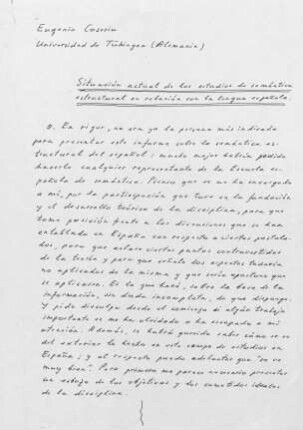 Eugenio Coseriu
Universidad de Tubingen (Alemania)
Situación actual de los estudios de semántica
estructural en relación con la lengua española.
0. En rigor, no era yo la persona más indicada
para presentar este informe sobre la semántica es-
tructural del español; mucho mejor habría podido
hacerlo cualquier representante de la Escuela es-
pañola de semántica. Pienso que se me ha encargado
a mí, por la participación que tuve en la fundación
y el desarrollo teórico de la disciplina, para que
tome posición frente a las discusiones que se han
entablado en España con respecto a ciertos postula-
dos, para que aclare ciertos puntos controvertidos
de la teoría y para que señale los aspectos todavía
no aplicados de la misma y que sería oportuno que
se aplicaran. Es lo que haré, sobre la base de la
información, sin duda incompleta, de que dispongo.
Y pido disculpas desde el comienzo si algún trabajo
importante se me ha olvidado o ha escapado a mi
atención. Además, se habrá querido saber cómo se ve
del exterior lo hecho en este campo de estudios en
España; y al respecto puedo adelantar que "se ve
muy bien". Pero primero me parece necesario presentar
un esbozo de los objetivos y los cometidos ideales
de la disciplina.